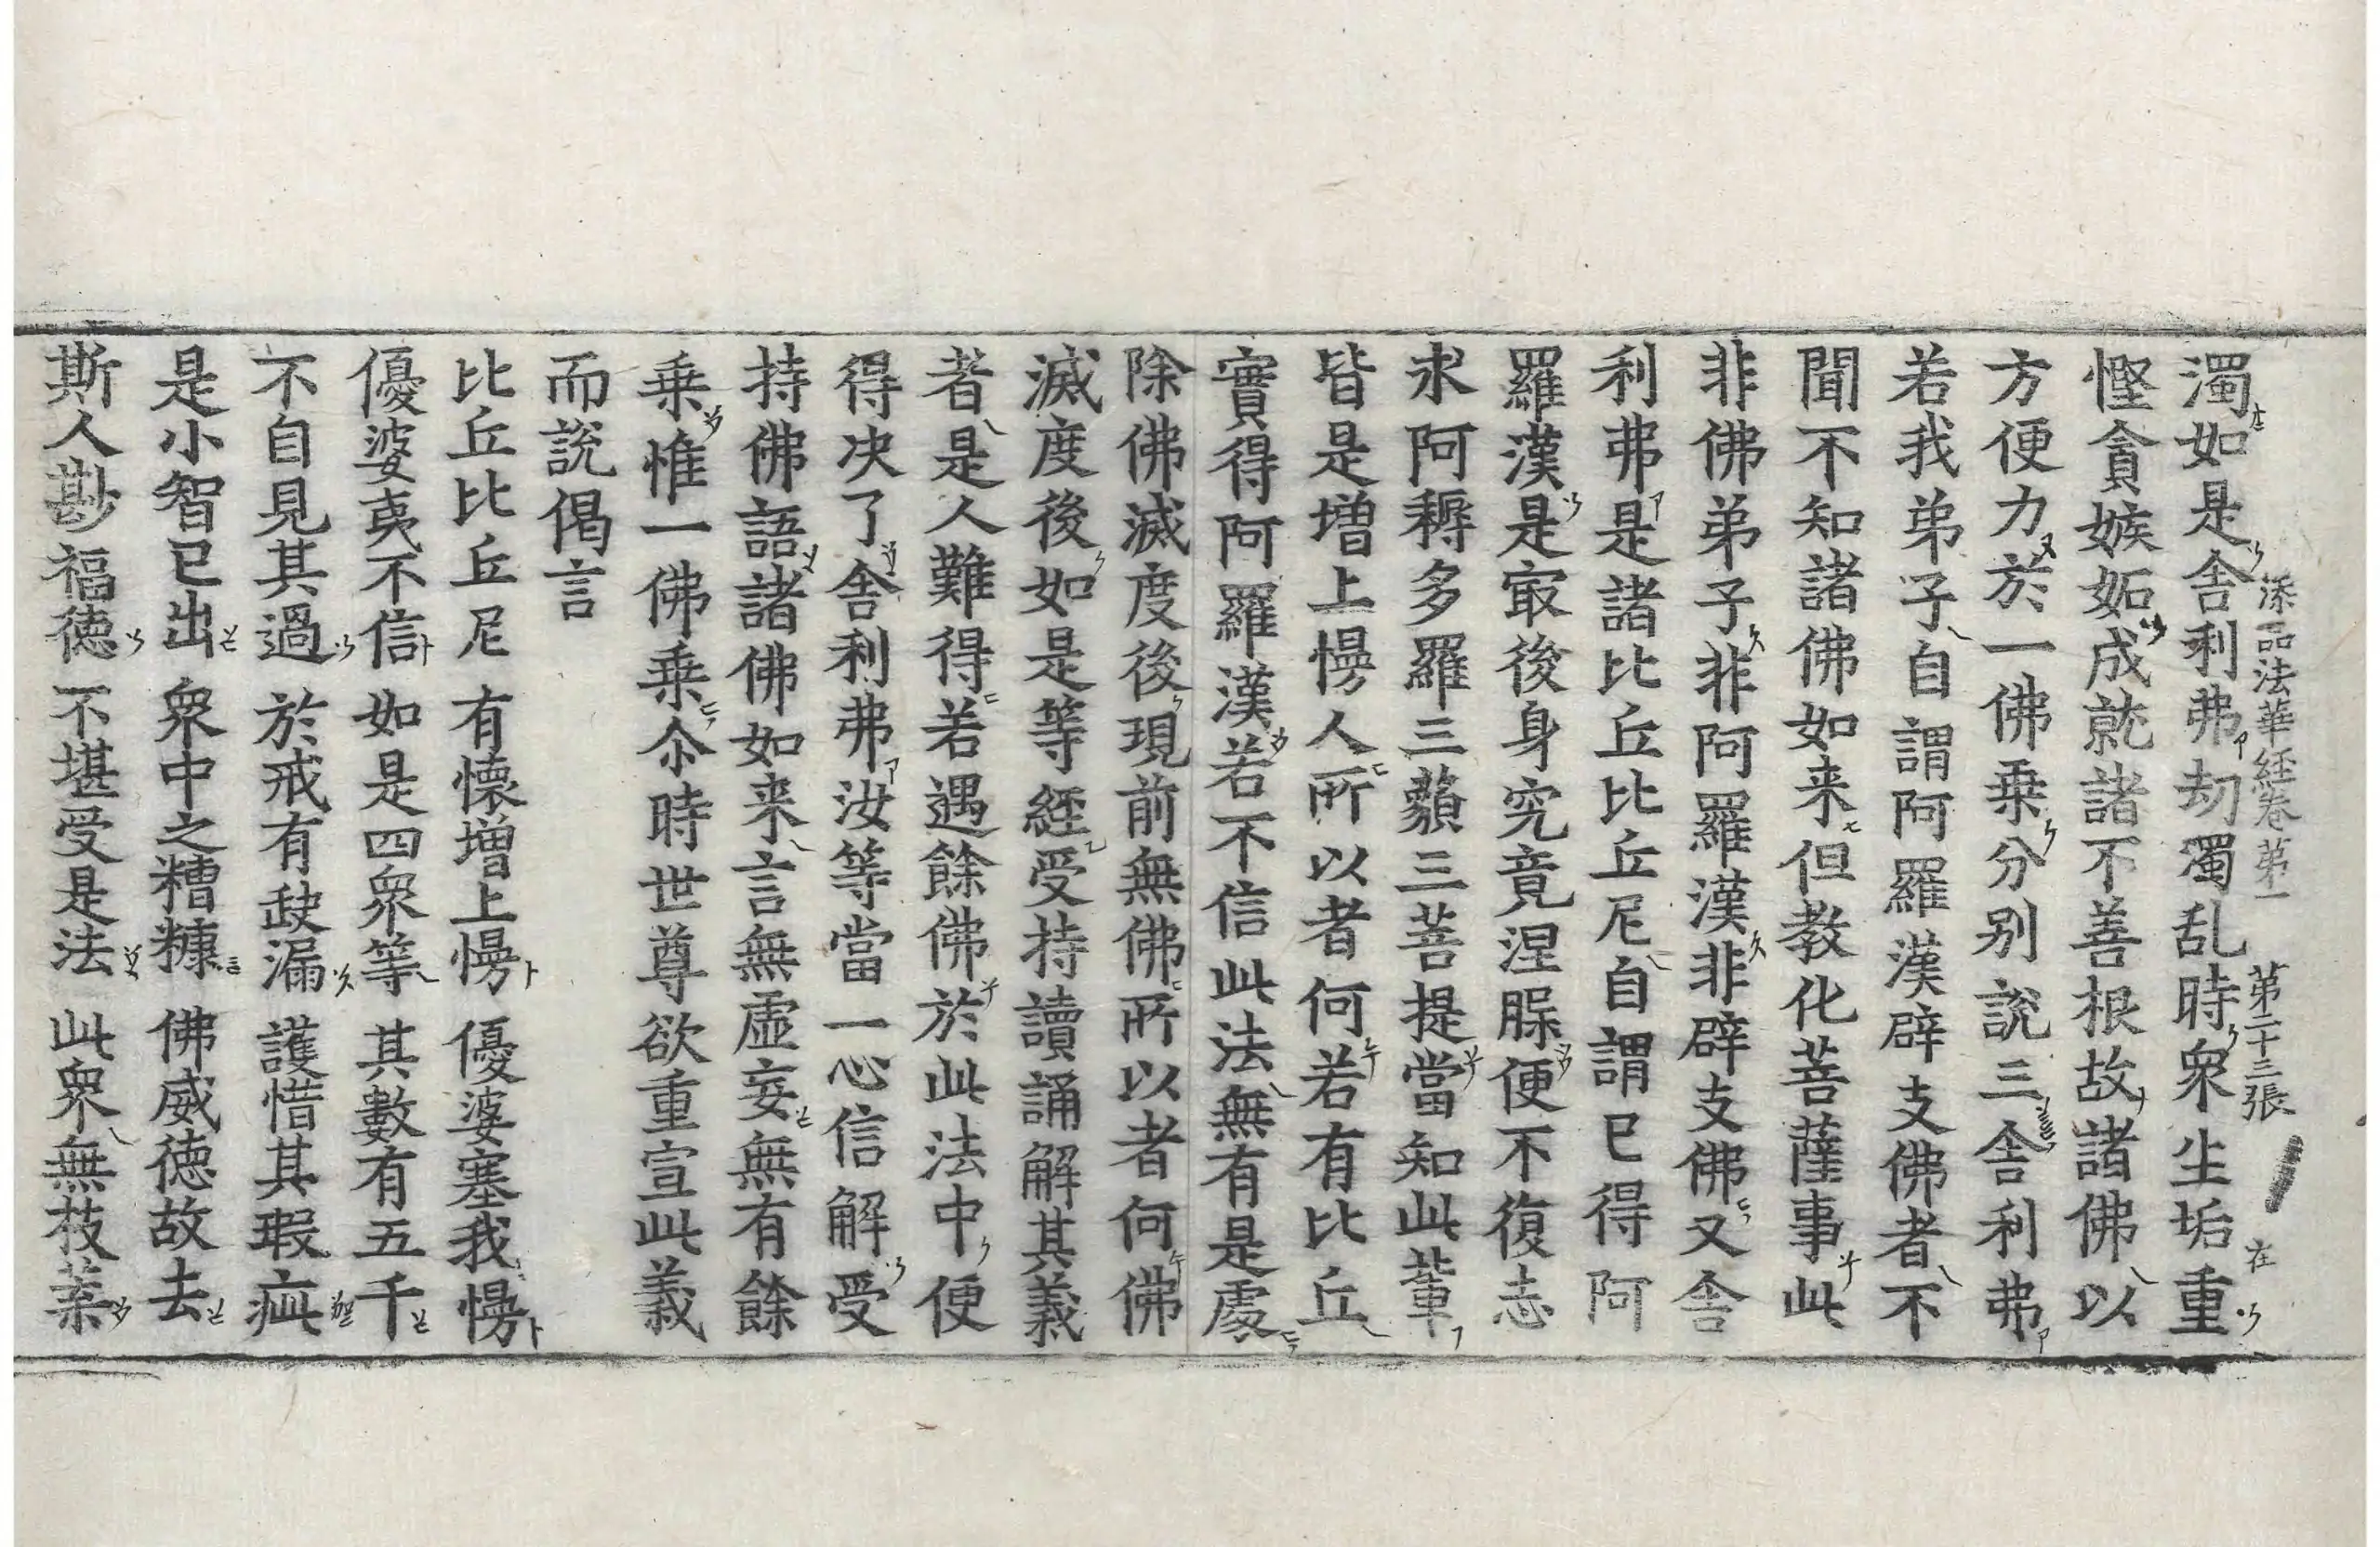 濁如是舎利弗劫濁乱時衆生垢重
慳貪嫉妬成就諸不善根故諸佛以
方便力於一佛乗分别說三舎利弗
若我弟子自謂阿羅漢辟支佛者不
聞不知諸佛如来但教化菩薩事此
非佛弟子非阿羅漢非辟支佛又舎
利弗是諸比丘比丘尼自謂已得阿
羅漢是冣後身究竟涅槃便不復志
求阿耨多羅三藐三菩提當知此輩
皆是增上慢人所以者何若有比丘
實得阿羅漢若不信此法無有是處
除佛滅度後現前無佛所以者何佛
滅度後如是等經受持讀誦解其義
者是人難得若遇餘佛於此法中便
得决了舎利弗汝等當一心信解受
持佛語諸佛如来言無虛妄無有餘
乗惟一佛乗尒時世尊欲重宣此義
而說偈言
比丘比丘尼 有懷增上慢 優婆塞我慢
優婆夷不信 如是四衆等 其數有五千
不自見其過 於戒有缺漏 護惜其瑕疵
是小智已出 衆中之糟糠 佛威德故去
斯人尠福德 不堪受是法 此衆無枝葉
添品法華經卷第一 第二十三張 在